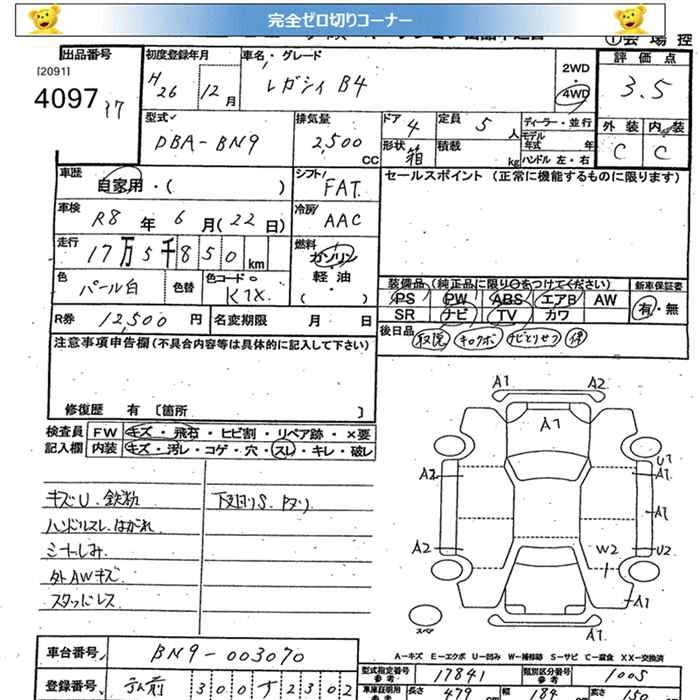 完全ゼロ切りコーナー
出品番号
[2091]
4097
初度登録年月
H26 12月
車名・グレード
レガシィ B4
2WD
・
4WD
評価点
3.5
外装 内装
C C
型式
DBA-BN9
排気量
2,500 CC
ドア 4
形状 箱
定員 5 人
積載 kg
ディーラー・並行
モデル
年式 年
ハンドル 左・右
車歴
自家用・( )
シフト
FAT
セールスポイント (正常に機能するものに限ります)
車検
R8年 6月(22日)
冷房
AAC
走行
17万5千850km
燃料
ガソリン
軽油
・
( )
色
パール白
色替
色コードNo
K1X
装備品 (純正品に限り○をつけてください)
PS PW ABS エアB AW
SR ナビ TV カワ
新車保証書
有・無
R券 12,500円
名変期限 月 日
後日品
取説 キロクボ ナビとりせつ 保
注意事項申告欄(不具合内容等は具体的に記入して下さい)
修復歴 有 [箇所 ]
検査員
記入欄
FW キズ・飛石・ヒビ割・リペア跡・×要
内装 キズ・汚レ・コゲ・穴・スレ・キレ・破レ
キズU. 鉄粉
ハンドルスレ. はがれ
シートしみ.
外AWキズ
スタッドレス
下廻りS.
A1 A2
A1
A2 U1
A1
A1
A2 W2 U2
A1
A1
スペア
A-キズ E-エクボ U-凹み W-補修跡 S-サビ C-腐食 XX-交換済
車台番号 BN9-003070
登録番号
300 す 2302
型式指定番号
参考
17841
類別区分番号
参考
1005
車庫証明用
参考
長さ 479 cm 幅 184 cm 高さ 150 cm